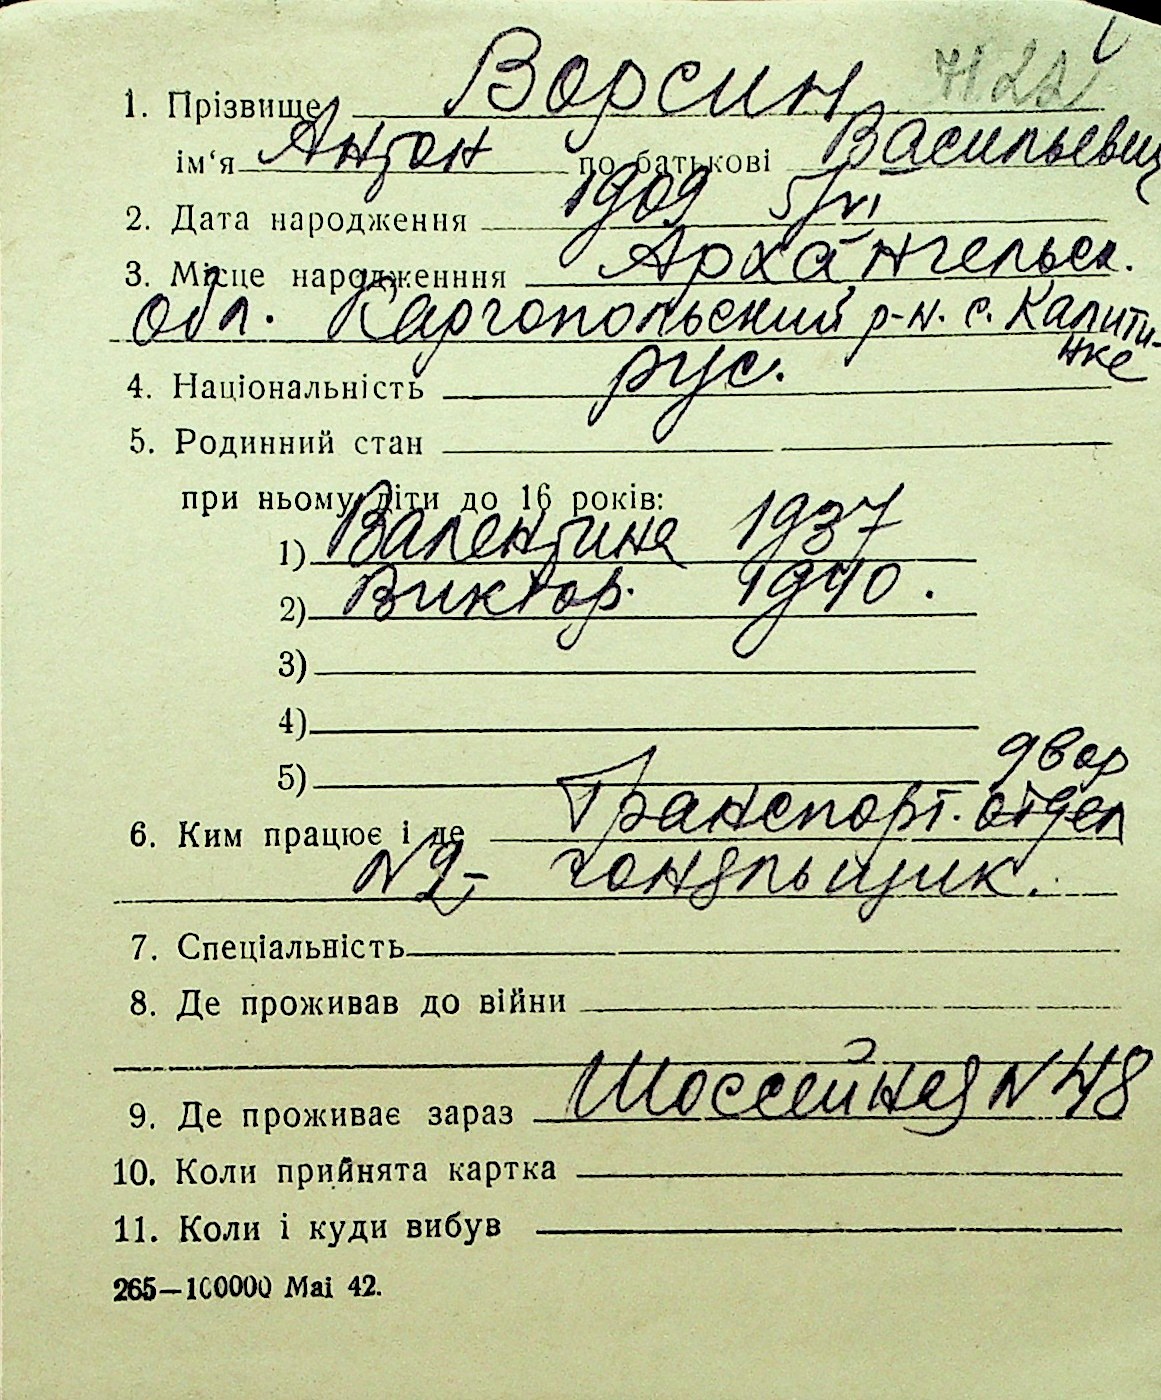 1. Прізвище Ворсин
ім‘я Антон по батькові Васильевич
2. Дата народження 1909 5/VI
3. Місце народженння Арха́нгельск.
обл. Каргопольский р-н. с. Калити-
нке
4. Національність рус.
5. Родинний стан
при ньому діти до 16 років:
1) Валентина 1937
2) Виктор. 1940.
3)
4)
5)
двор
6. Ким працює і де Транспорт. отдел
N2- гоняльщик.
7. Спеціальність
8. Де проживав до війни
9. Де проживає зараз Шоссейная N 48
10. Коли прийнята картка
11. Коли і куди вибув
265—100000 Mai 42.